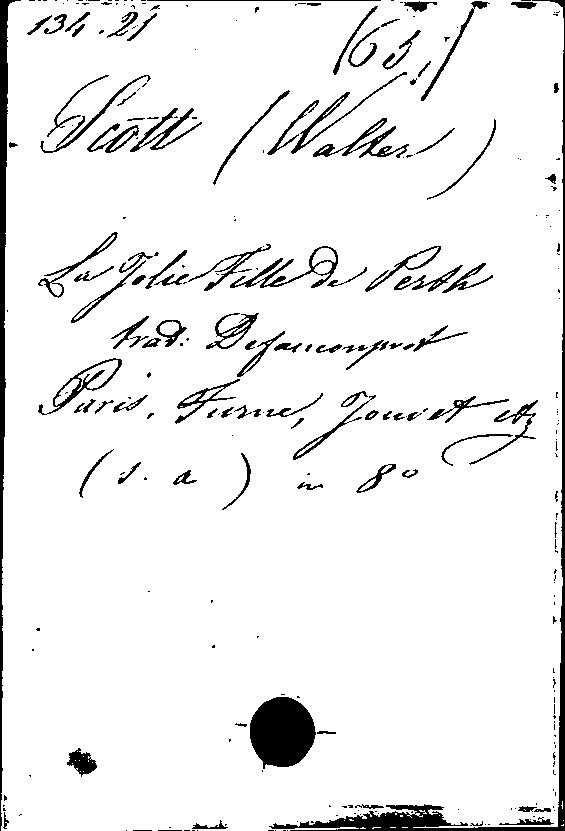 134.21
Scott (Walter)
La Jolie Fille de Perth
trad: Defauconpret
Paris, Furne, Jouvet et
(s. a) in 8°